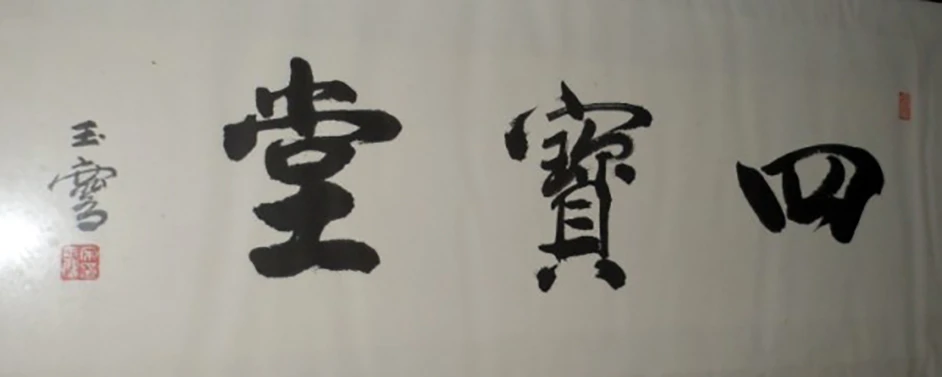 四寶堂
玉雪